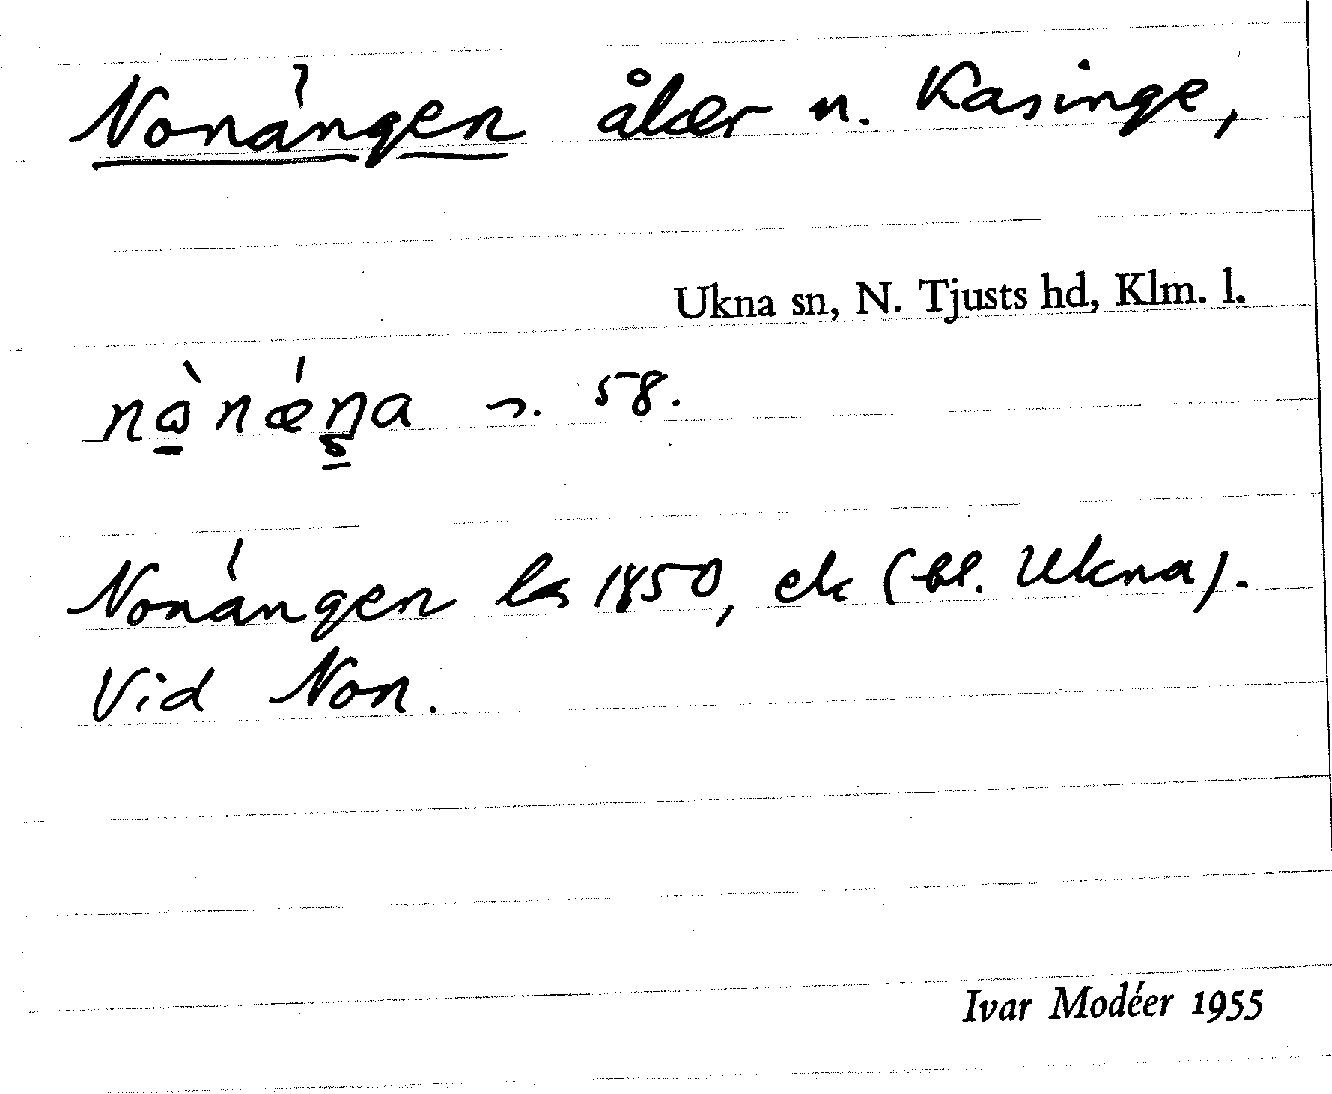 Nonängen åker n. Kasinge,
Ukna sn, N. Tjusts hd, Klm. l.
58.
Nonängen ls 1850, ek (bl. Ukna).
Vid Non.
Ivar Modéer 1955